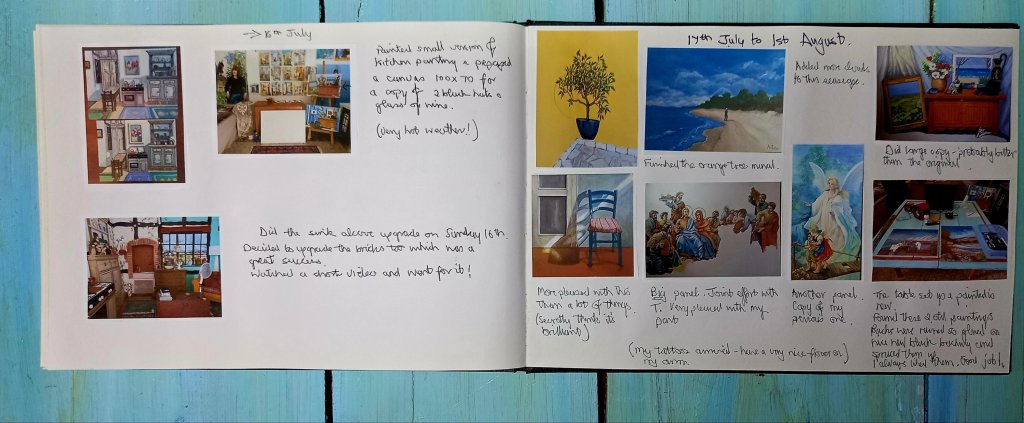 → 16th July
Painted small version of
kitchen painting & prepared
a canvas 100x70 for
a copy of 2 blush nude &
glass of wine.
(Very hot weather!!)
Did the sink alcove upgrade on Sunday 16th.
Decided to upgrade the bricks too which was a
great success.
Watched a short video and went for it!
17th July to 1st August.
Added more clouds
to this seascape.
Finished the orange tree mural.
Did large copy - probably better
than the original.
More pleased with this
than a lot of things.
(secretly think it's
brilliant)
Big panel. Joint effort with
T. Very pleased with my
part
Another panel.
Copy of my
previous one.
The table set up & painted is
new.
Found these 2 old paintings
Backs were ruined so glued on
nice new black backing and
spruced them up.
I always liked them. Good job!
(My tattoos arrived - have a very nice flower on
my arm